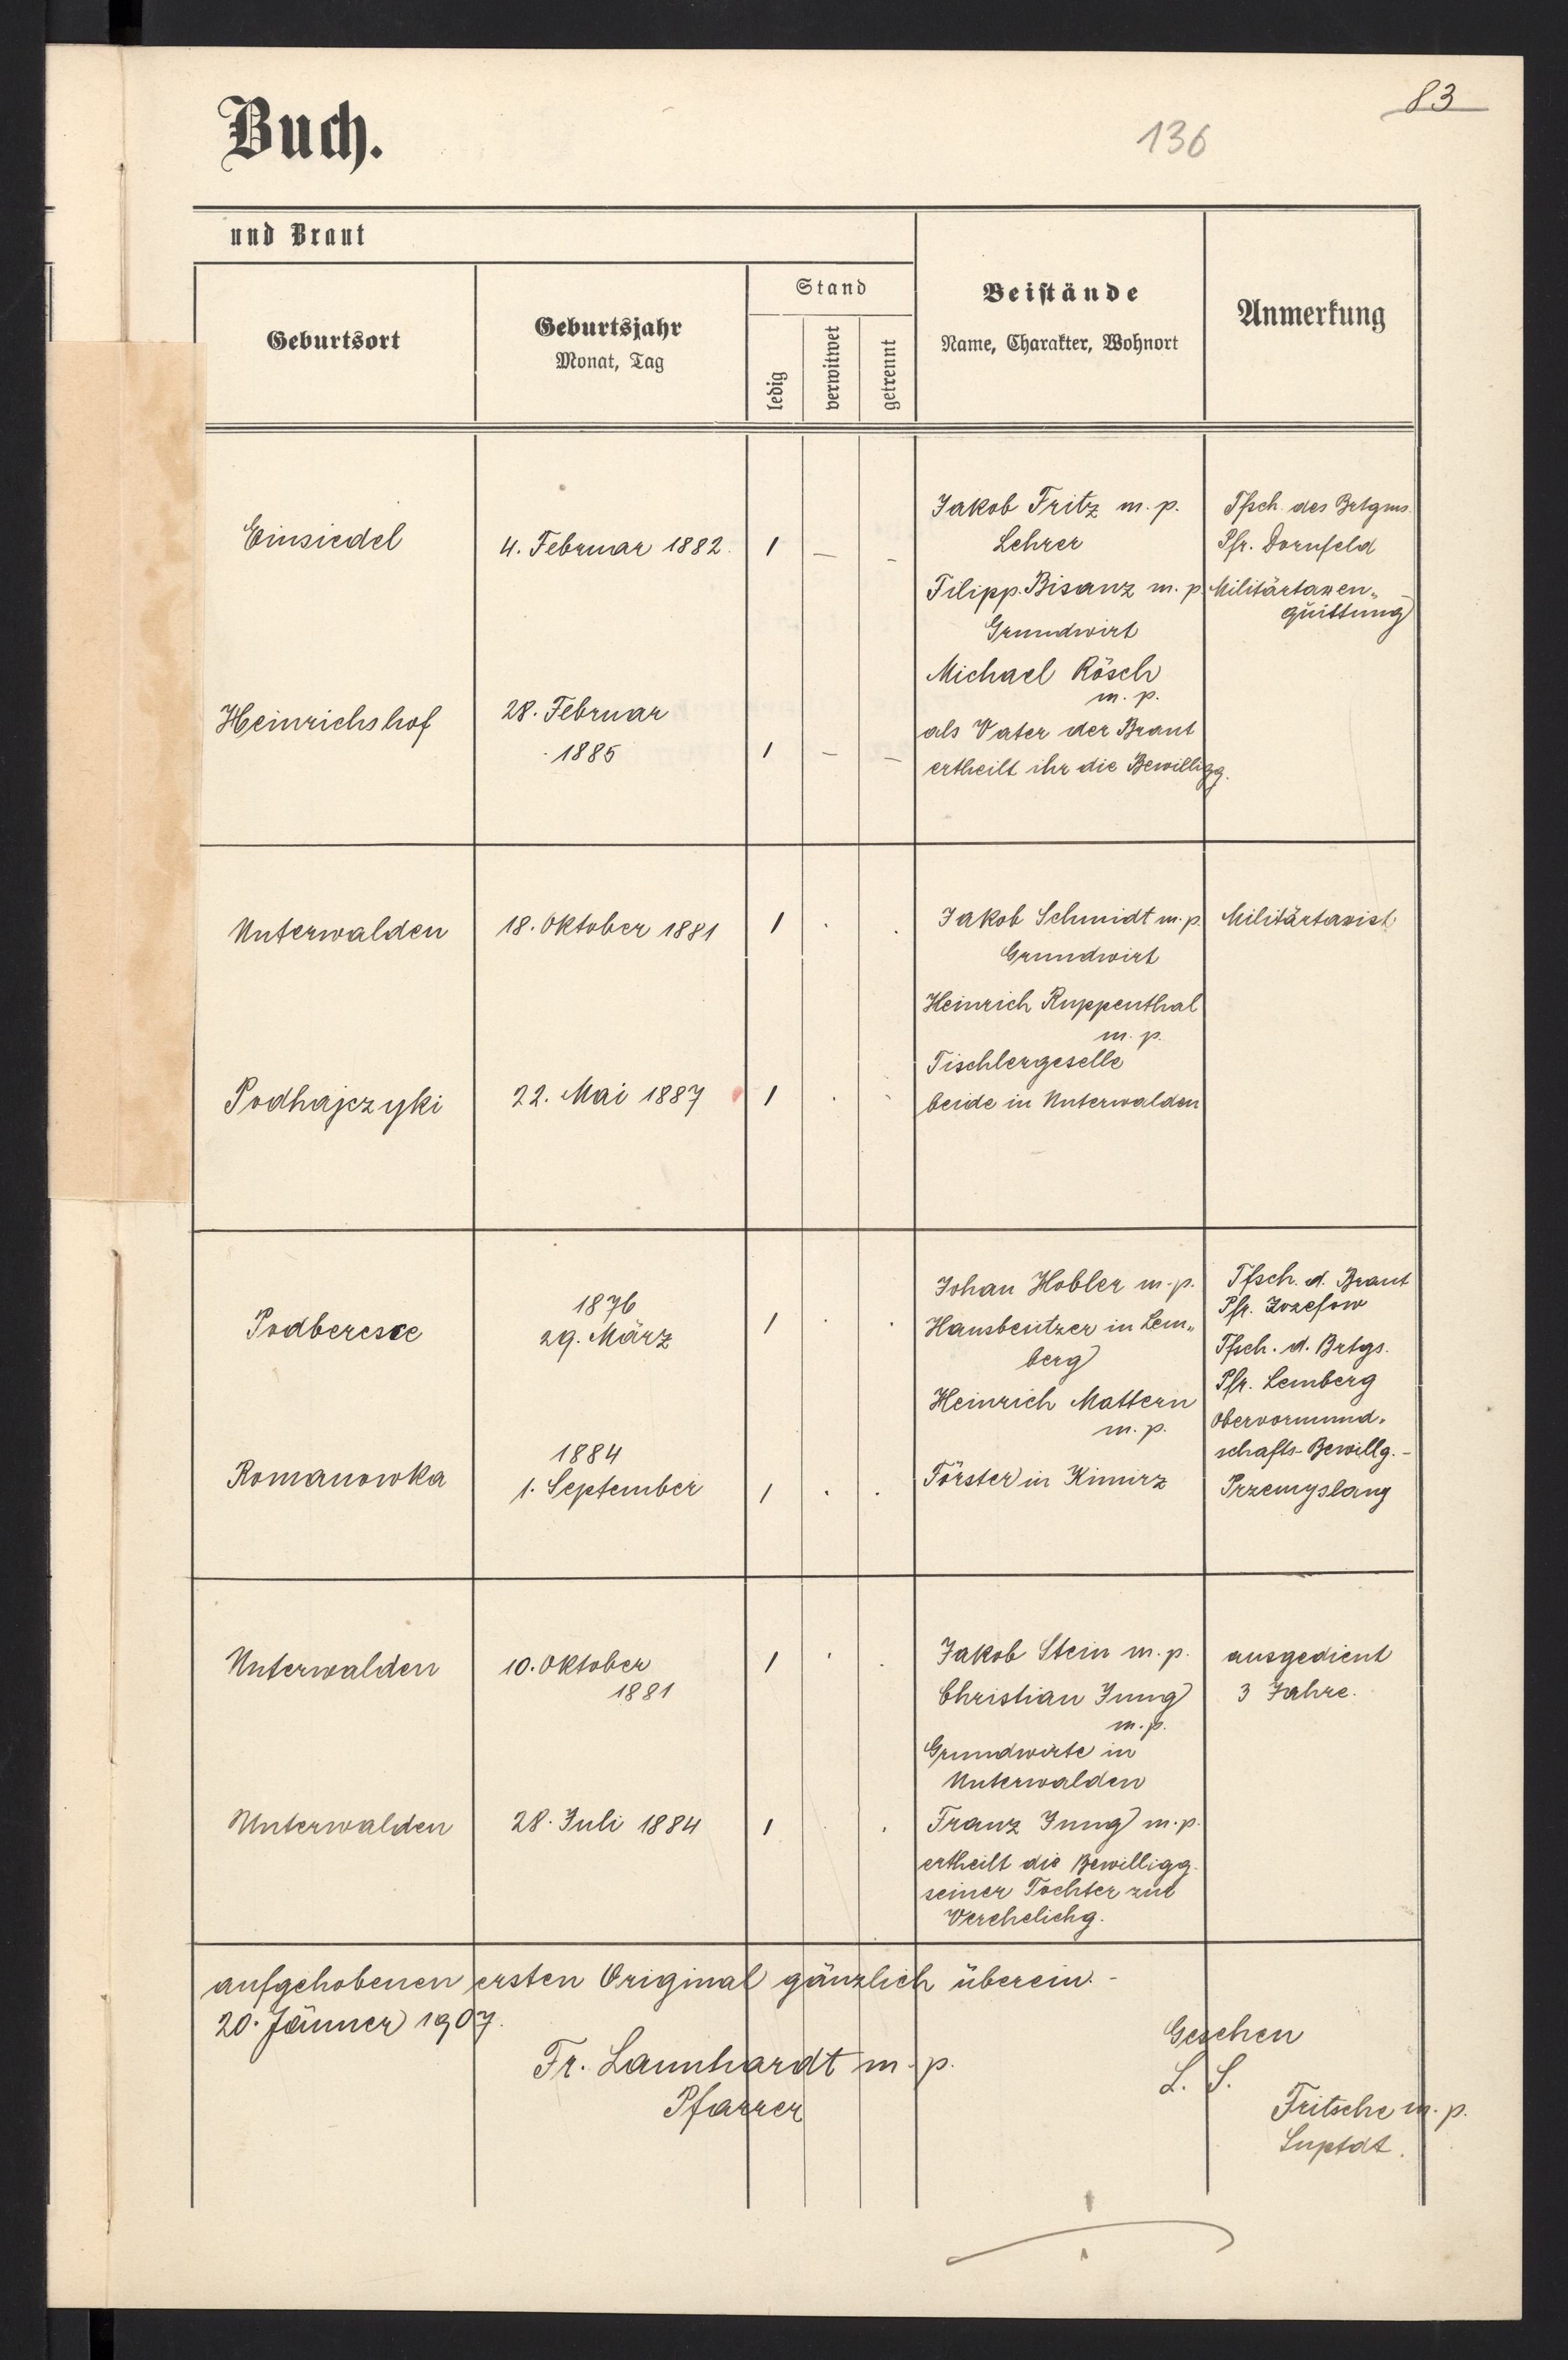 83
136
Buch.
und Braut
Geburtsort
Geburtsjahr
Monat, Tag
Stand
ledig
verwitwet
getrennt
Beistände
Name, Charakter, Wohnort
Anmerkung
Einsiedel
4. Februar 1882.
1 — –
Jakob Fritz m. p.
Lehrer
Filipp Bisanz m. p.
Grundwirt
Michael Rösch
m. p.
als Vater der Braut
ertheilt ihr die Bewilligg.
Tfsch. des Brtgms.
Pfr. Dornfeld
Militärtaxen„
quittung
Heinrichshof
28. Februar
1885
1 – –
Unterwalden
18. Oktober 1881
1 . .
Jakob Schmidt m. p.
Grundwirt
Heinrich Ruppenthal
m. p.
Tischlergeselle
beide in Unterwalden
Militärtaxist
Podhajczyki
22. Mai 1887
1 . .
Podberesce
1876
29. März
1 . .
Johan Hobler m. p.
Hausbesitzer in Lem„
berg
Heinrich Mattern
m. p.
Förster in Kimirz
Tfsch. d. Braut
Pfr. Josefow
Tfsch. d. Brtgs.
Pfr. Lemberg
Obervormund„
schafts-Bewillg. –
Przemyslany
Romanowka
1884
1. September
1 . .
Unterwalden
10. Oktober
1881
1 . .
Jakob Stein m. p.
Christian Jung
m. p.
Grundwirte in
Unterwalden
Franz Jung m. p.
ertheilt die Bewilligg.
seiner Tochter zur
Verehelichg.
ausgedient
3 Jahre.
Unterwalden
28. Juli 1884
1 . .
aufgehobenen ersten Original gänzlich überein. –
20. Jänner 1907.
Fr. Lannhardt m. p.
Pfarrer
Gesehen
L. S.
Fritsche m. p.
Suptdt.